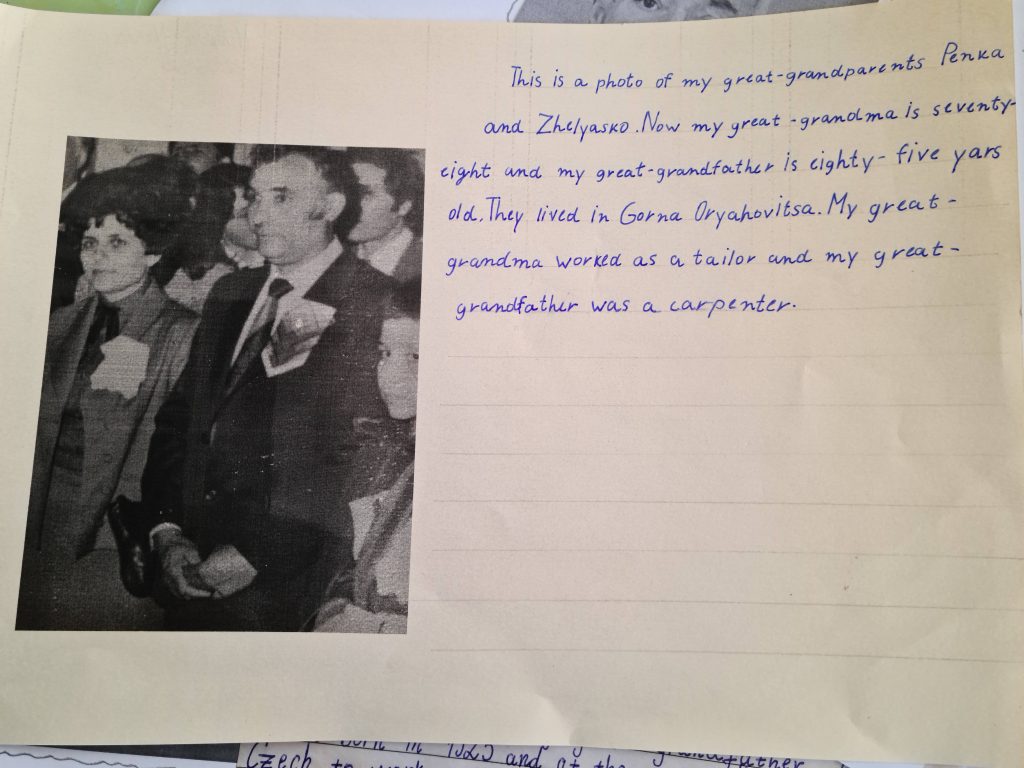 This is a photo of my great-grandparents Penka
and Zhelyasko. Now my great-grandma is seventy-
eight and my great-grandfather is eighty-five yars
old. They lived in Gorna Oryahovitsa. My great-
grandma worked as a tailor and my great-
grandfather was a carpenter.
born in 1923 and
grandfather
Czech to work and at the